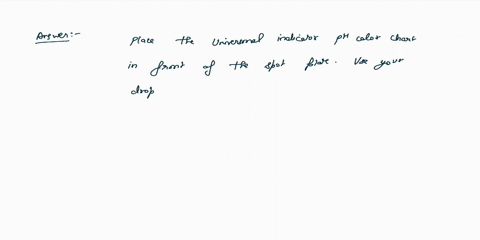 Answer:- Place the Universal indicator pH color chart
in front of the spot plate. Use your
drop